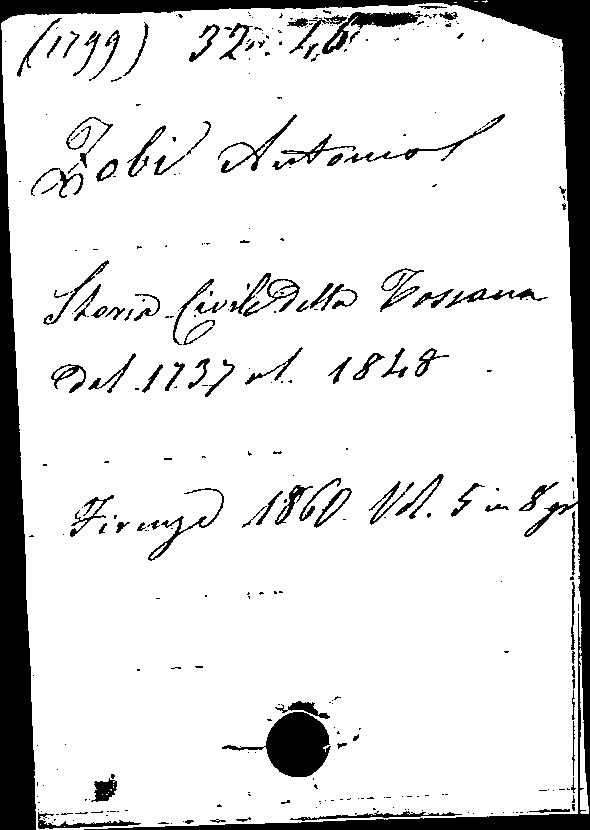 (1799) 32 4,6
Zobi Antonio
Storia Civile della Toscana
dal 1737 al 1848
Firenze 1860 Vol. 5 in 8 gr